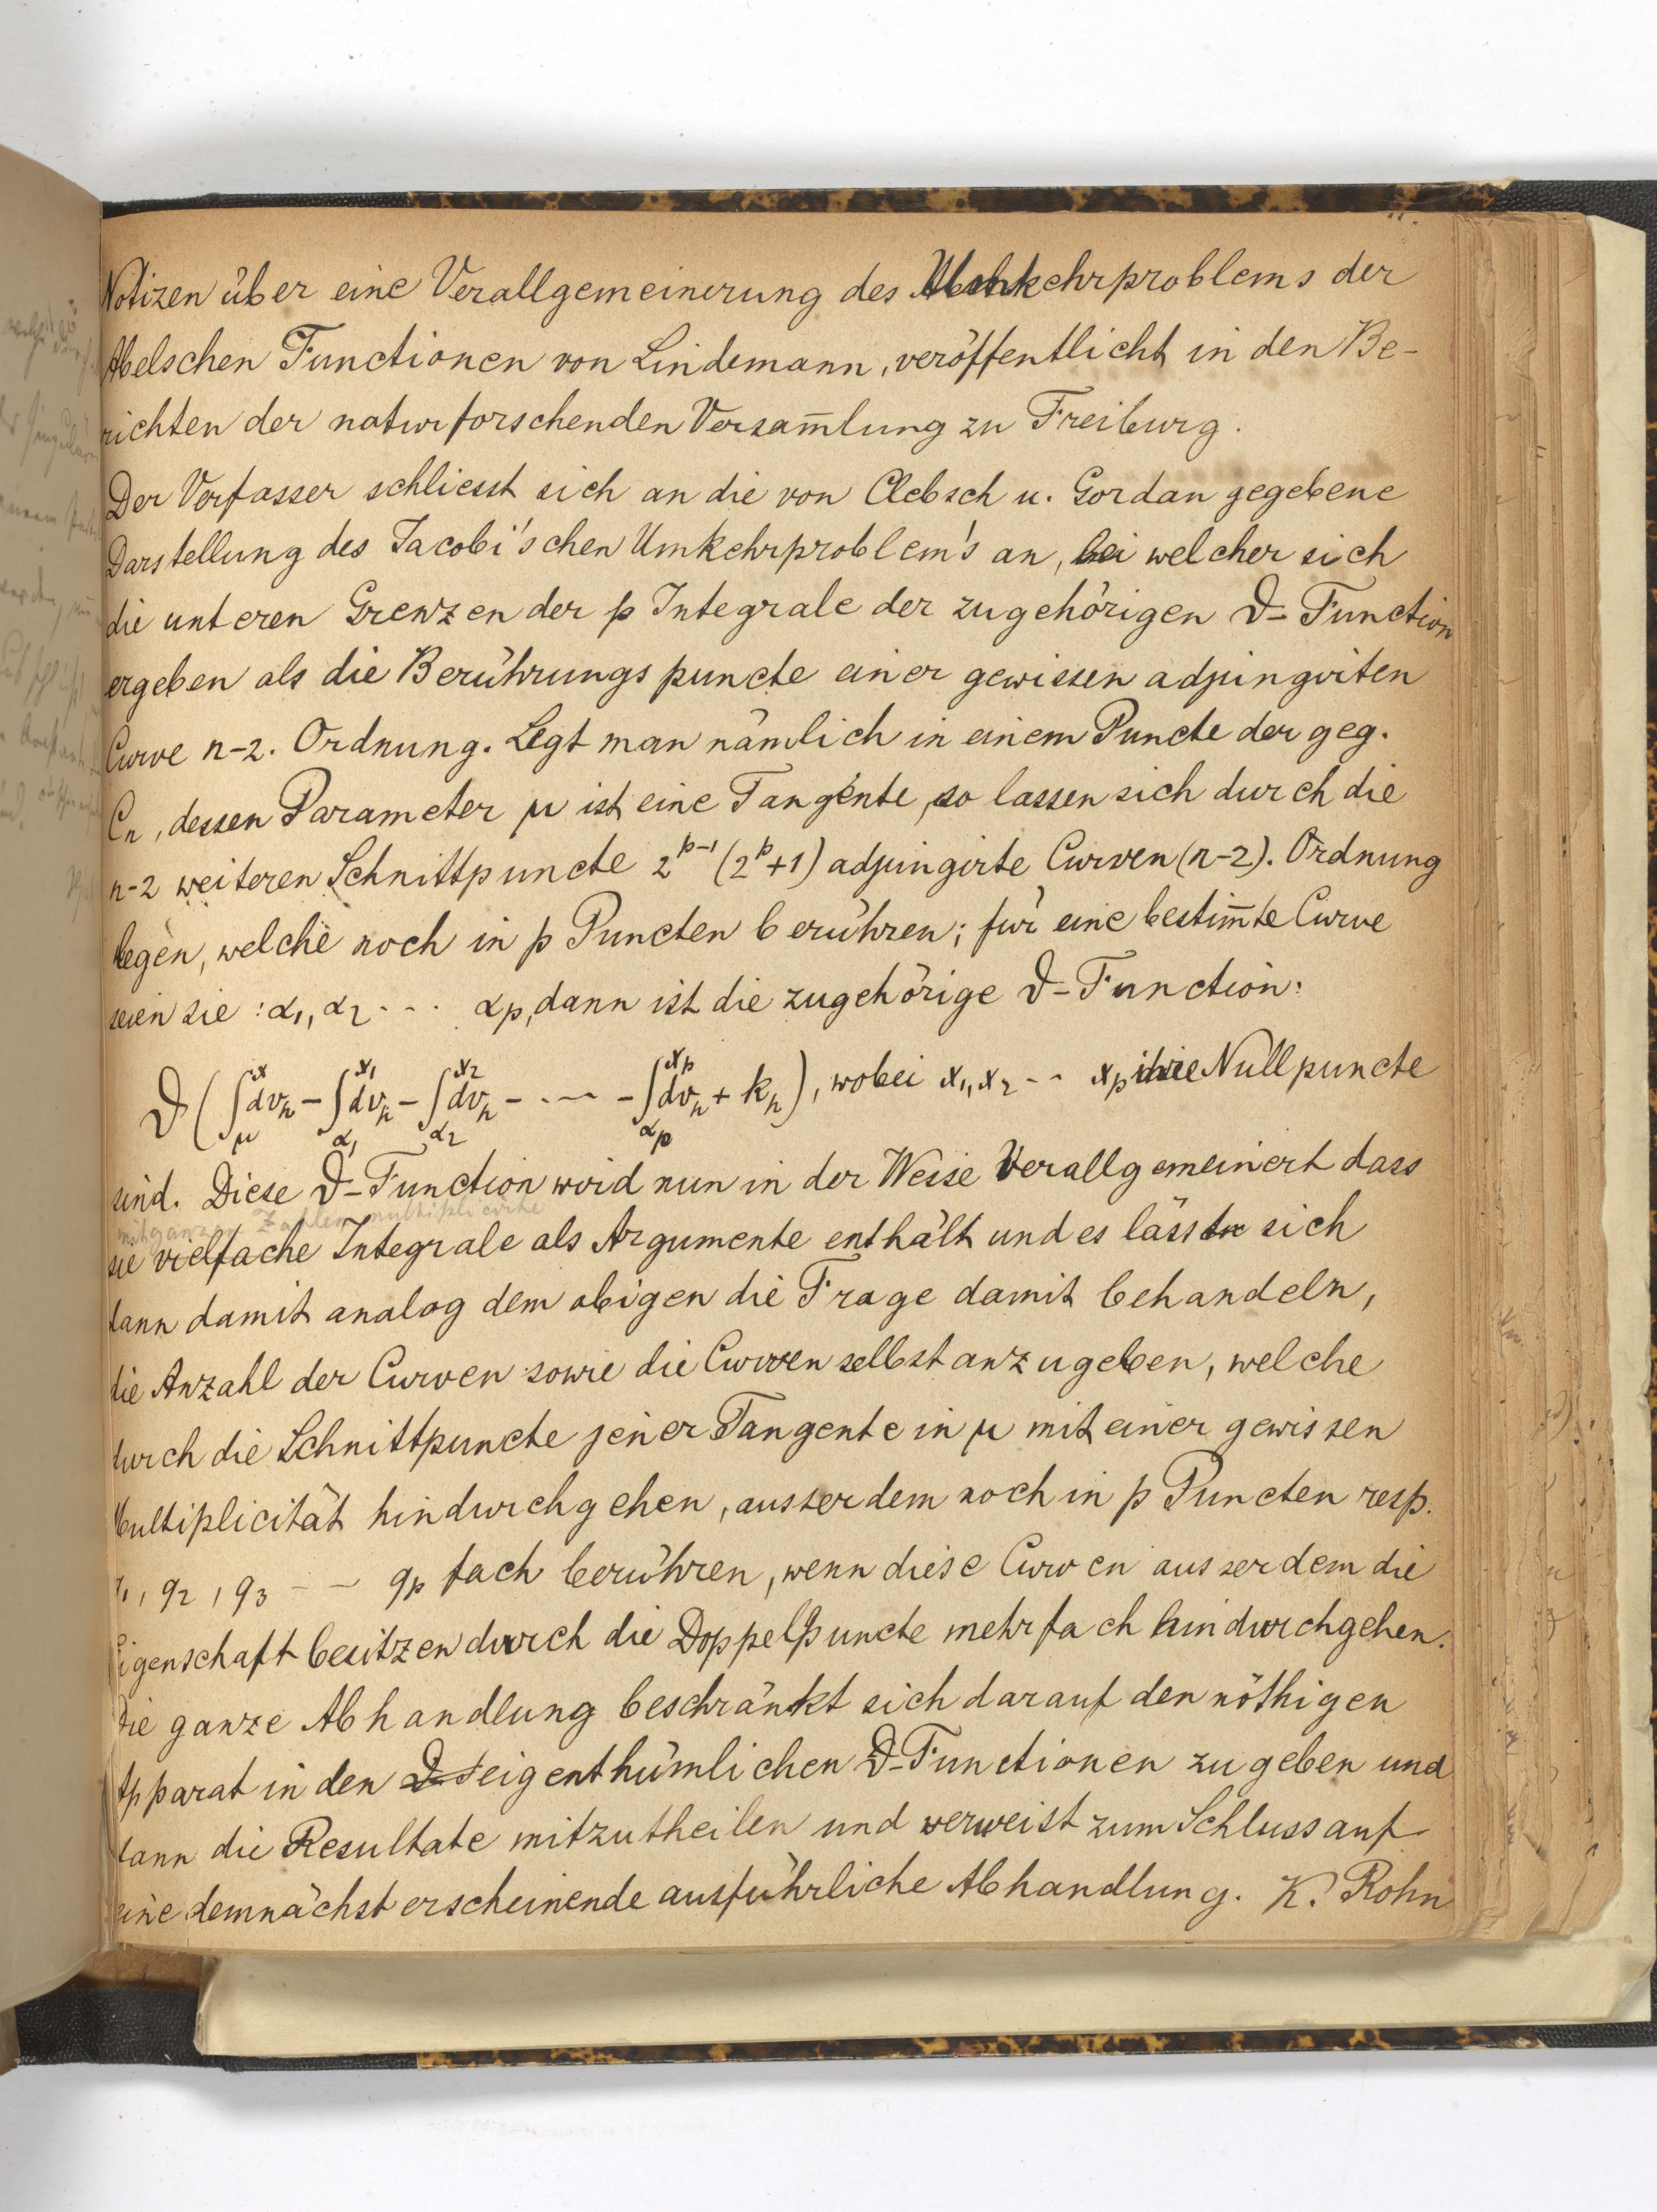 Notizen über eine Verallgemeinerung des Umkehrproblems der
Abelschen Functionen von Lindemann, veröffentlicht in den Be-
richten der naturforschenden Versam̄lung zu Freiburg.
Der Verfasser schliesst sich an die von Clebsch u. Gordan gegebene
Darstellung des Jacobi'schen Umkehrproblem's an, bei welcher sich
die unteren Grenzen der p Integrale der zugehörigen ϑ-Function
ergeben als die Berührungspuncte einer gewissen adjungirten
Curve n-2. Ordnung. Legt man nämlich in einem Puncte der geg.
Cₙ, dessen Parameter μ ist eine Tangente, so lassen sich durch die
n-2 weiteren Schnittpuncte 2^{p-1}(2^p+1) adjungirte Curven (n-2). Ordnung
legen, welche noch in p Puncten berühren; für eine bestim̄te Curve
seien sie: α₁, α₂ --- αₚ, dann ist die zugehörige ϑ-Function:
ϑ(∫_μ^x dv_h - ∫_{α₁}^{x₁} dv_h - ∫_{α₂}^{x₂} dv_h - --- - ∫_{αₚ}^{xₚ} dv_h + k_h), wobei x₁, x₂ -- xₚ ihre Nullpuncte
sind. Diese ϑ-Function wird nun in der Weise Verallgemeinert dass
mit ganzen Zahlen multiplicirte
sie vielfache Integrale als Argumente enthält und es lässt sich
dann damit analog dem obigen die Frage damit behandeln,
die Anzahl der Curven sowie die Curven selbst anzugeben, welche
durch die Schnittpuncte jener Tangente in μ mit einer gewissen
Multiplicität hindurchgehen, ausserdem noch in p Puncten resp.
q₁, q₂, q₃ -- qₚ fach berühren, wenn diese Curven ausserdem die
Eigenschaft besitzen durch die Doppelpuncte mehrfach hindurchgehen.
Die ganze Abhandlung beschränkt sich darauf den nöthigen
Apparat in den eigenthümlichen ϑ-Functionen zu geben und
dann die Resultate mitzutheilen und verweist zum Schluss auf
eine demnächst erscheinende ausführliche Abhandlung. K. Rohn